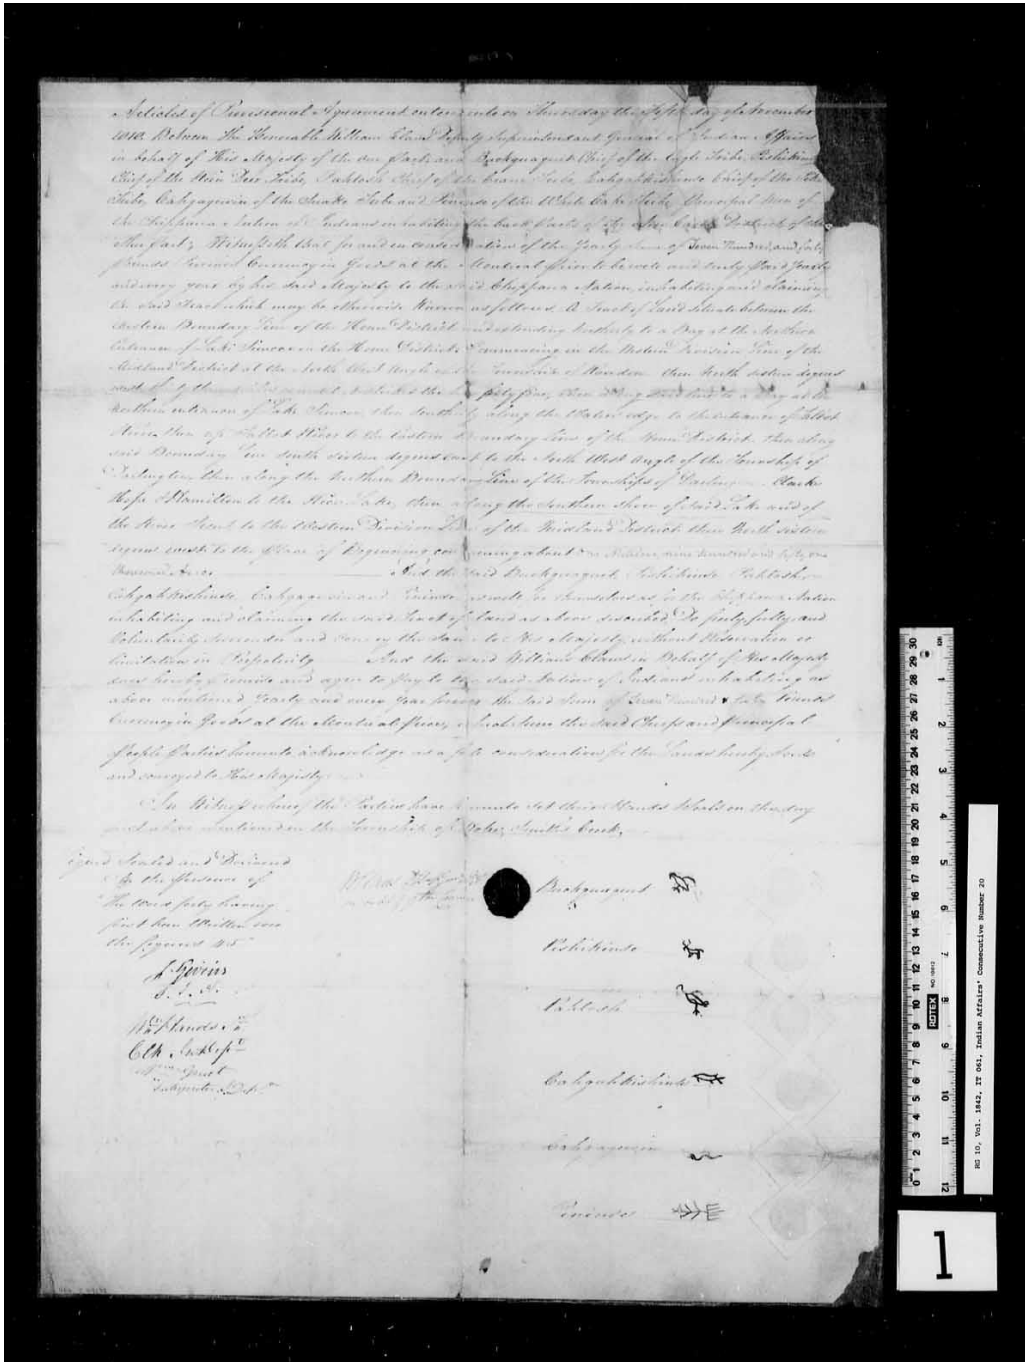 Articles of Provisional Agreement entered into on Thursday the fifth day of November
1818. Between the Honorable William Claus Deputy Superintendant General of Indian Affairs
in behalf of His Majesty of the one part and Buckquaquet Chief of the Eagle Tribe, Pishikinse
Chief of the Rein Deer Tribe, Pahtosh Chief of the Crane Tribe, Cahgahkishinse Chief of the
Tribe, Cahgagewin of the Snake Tribe and Pininse of the White Oak Tribe, Principal Men of
the Chippawa Nation of Indians inhabiting the back Parts of the New Castle District of the
other part, Witnesseth that for and in consideration of the Yearly Sum of Seven Hundred and forty
pounds Province Currency in Goods at the Montreal Price to be well and truly Paid Yearly
and every year by his said Majesty to the said Chippawa Nation, inhabiting and claiming
the said Tract which may be otherwise known as follows. A Tract of Land situate between the
Western Boundary Line of the Home District and extending Northerly to a Bay at the Northern
Entrance of Lake Simcoe in the Home District. Commencing in the Western Division Line of the
Midland District at the North West Angle of the Township of Rawdon then North sixteen degrees
West thirty three until it strikes the Line forty five, then along said line to a Bay at the
Northern entrance of Lake Simcoe then Southerly along the Water edge to the entrance of Talbot
River then up Talbot River to the Eastern Boundary Line of the Home District then along
said Boundary Line South sixteen degrees East to the North West Angle of the Township of
Darlington, then along the Northern Boundary Line of the Townships of Darlington Clarke
Hope & Hamilton to the Rice Lake, then along the Southern Shore of said Lake and of
the River Trent to the Western Division Line of the Midland District then North sixteen
degrees west to the Place of Beginning containing about one Million nine hundred and fifty one
thousand Acres And the said Buckquaquet, Pishikinse, Pahtosh
Cahgahkishinse, Cahgagewin and Pininse as well for themselves as for the Chippawa Nation
inhabiting and claiming the said Tract of Land as above described Do freely, fully and
Voluntarily surrender and convey the same to His Majesty without Reservation or
limitation in Perpetuity And the said William Claus in Behalf of His Majesty
does hereby promise and agree to Pay to the said Nation of Indians inhabiting as
above mentioned Yearly and every Year forever the said Sum of Seven Hundred & forty Pounds
Currency in Goods at the Montreal Price, which sum the said Chiefs and Principal
People Parties hereunto acknowledge as a full consideration for the Lands hereby sold
and conveyed to His Majesty
In Witness whereof the Parties have hereunto set their Hands & Seals on the day
first above mentioned in the Township of Hope, Smith's Creek,
Signed Sealed and Delivered
In the Presence of
The Word fifty having
first been Written over
the figures 45
J. Givins
S. I. A.
Wm Hands
Clk
W Claus
Dy Supt General
in behalf of the Crown
Buckquaquet
Pishikinse
Pahtosh
Cahgahkishinse
Cahgagewin
Pininse
RG 10, Vol. 1842, IT 061, Indian Affairs' Consecutive Number 20
ROTEX
1